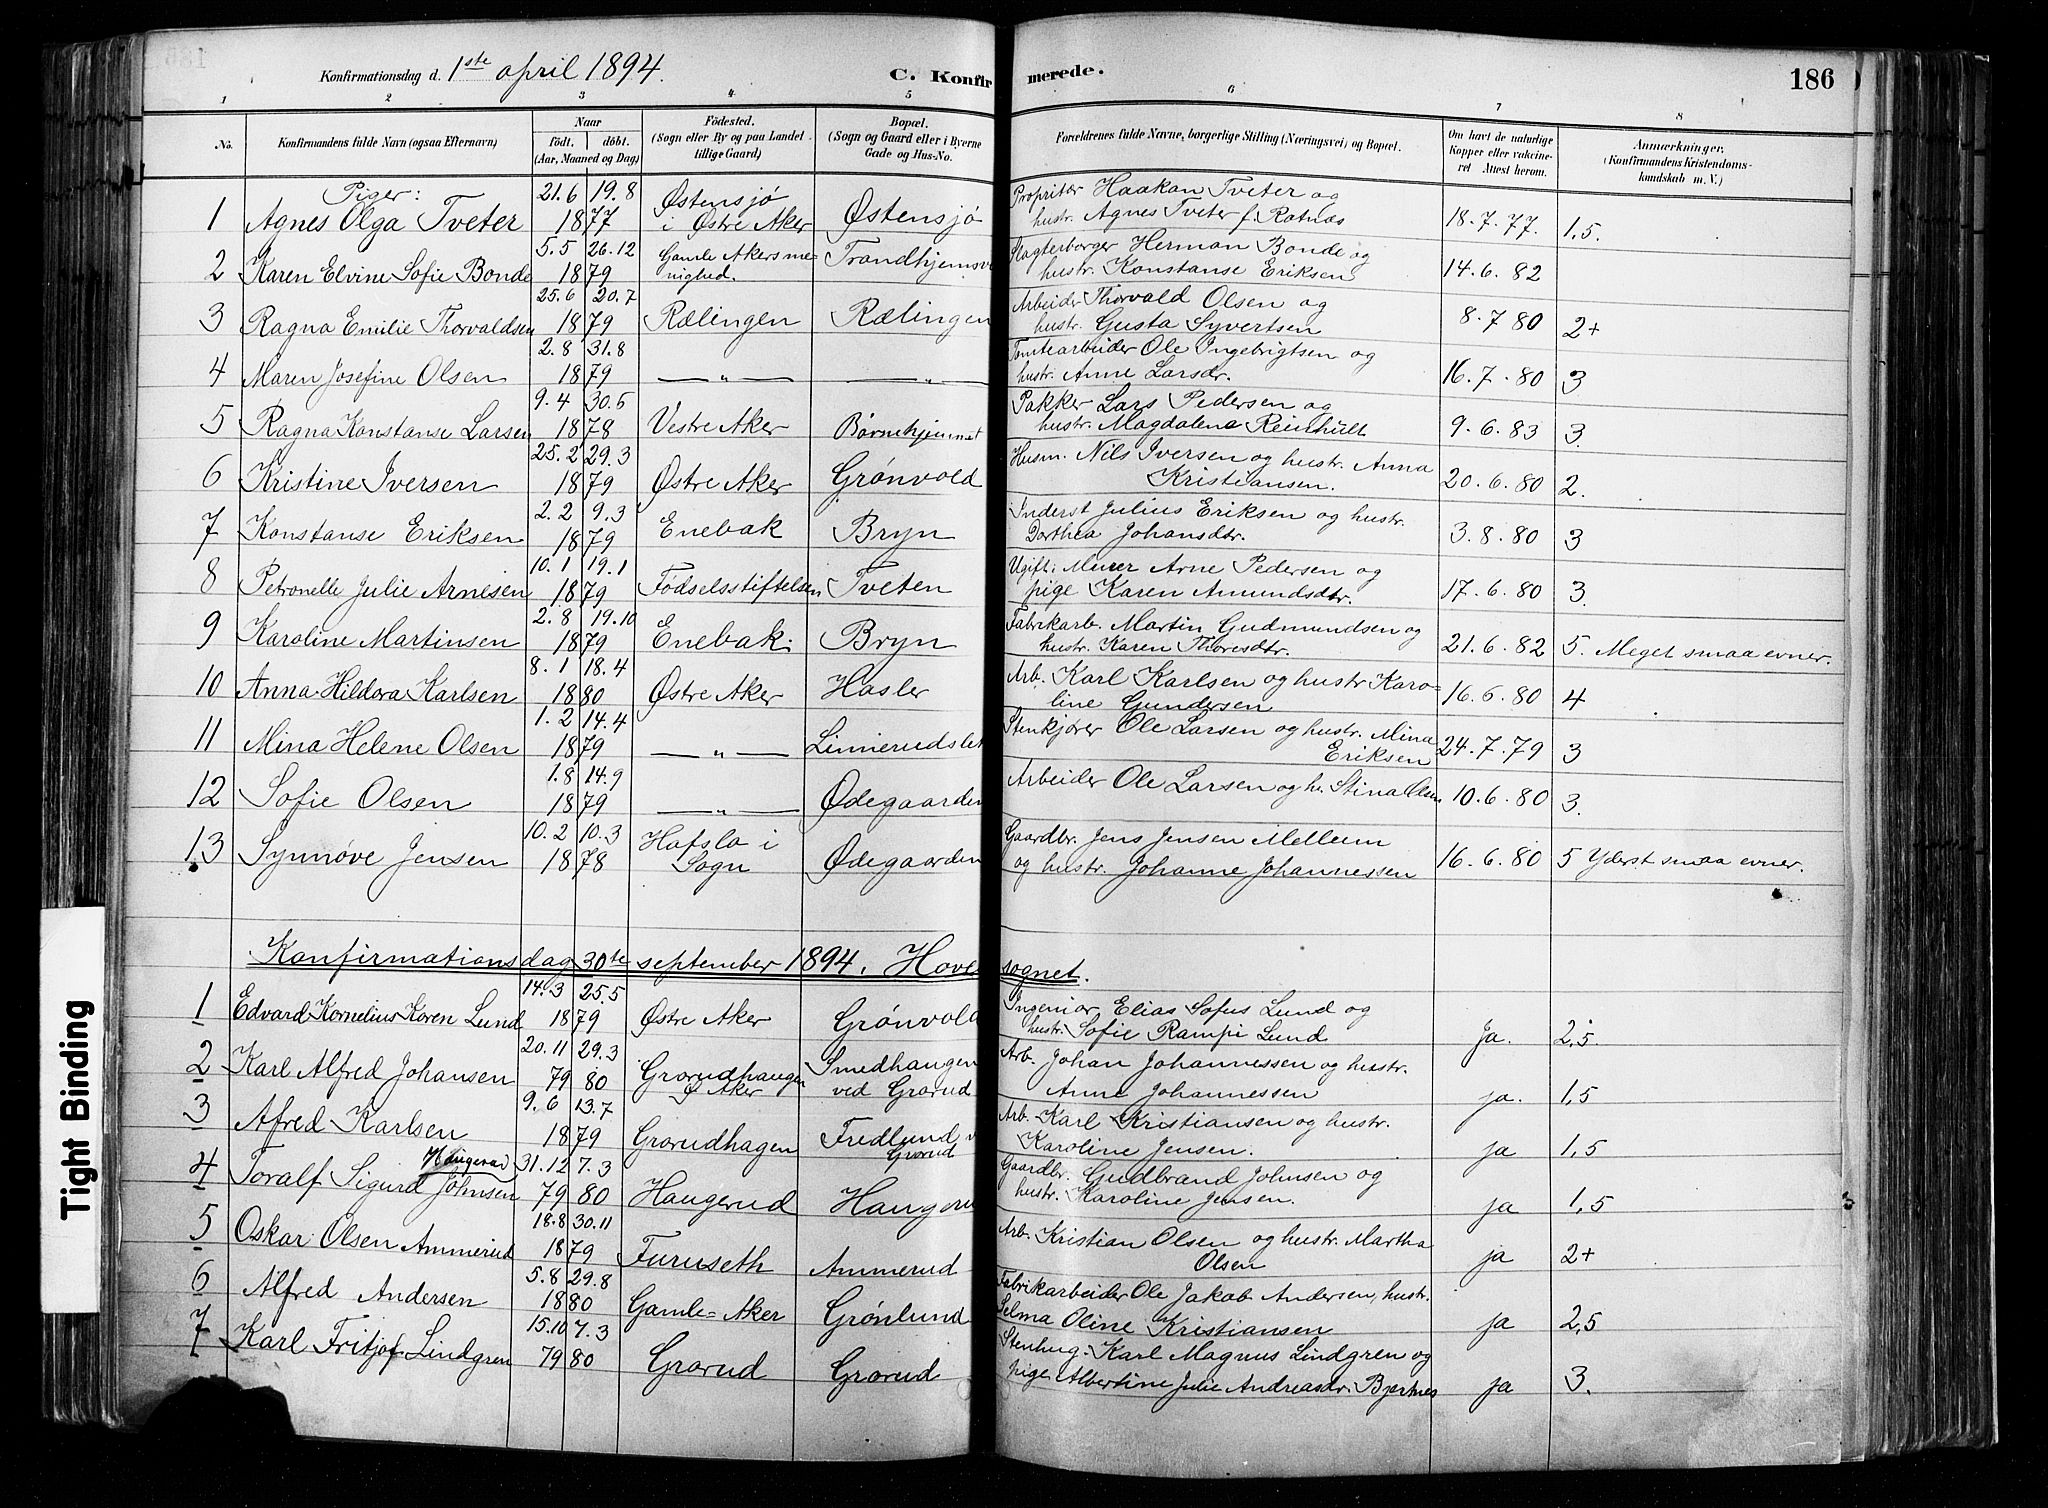 Konfirmationsdag d. 1ste april 1894. C. Konfirmerede. 186
1 2 3 4 5 6 7 8
No. Konfirmandens fulde Navn (ogsaa Efternavn) Naar født. døbt. (Aar, Maaned og Dag) Fødested. (Sogn eller By og paa Landet tillige Gaard) Bopæl. (Sogn og Gaard eller i Byerne Gade og Hus-No. Forældrenes fulde Navne, borgerlige Stilling (Næringsvei) og Bopæl. Om havt de naturlige Kopper eller vakcineret. Attest herom. Anmærkninger. (Konfirmandens Kristendomskundskab m. V.)
Piger:
1 Agnes Olga Tveter 21.6 19.8 1877 Østensjø i Østre Aker Østensjø Propritær Haakon Tveter og hustr. Agnes Tveter f. 18.7.77. 1,5.
2 Karen Elvine Sofie Bonde 5.5 26.12 1879 Gamle Akers menighed. Trondhjemsv Slagterborger Herman Bonde og hustr. Konstanse Eriksen 14.6.82
3 Ragna Emilie Thorvaldsen 25.6 20.7 1879 Rælingen Rælingen Arbeider Thorvald Olsen og hustr. Gusta Syvertsen 8.7 80 2+
4 Maren Josefine Olsen 2.8 31.8 1879 — „ — — „ — Tomtearbeider Ole Ingebrigtsen og hustr. Anne Larsdr. 16.7.80 3
5 Ragna Konstanse Larsen 9.4 30.5 1878 Vestre Aker Børnehjemmet Pakker Lars Pedersen og hustr. Magdalena Reinhült 9.6.83 3.
6 Kristine Iversen 25.2 29.3 1879 Østre Aker Grønvold Husm. Nils Iversen og hustr. Anna Kristiansen. 20.6.80 2.
7 Konstanse Eriksen 2.2 9.3 1879 Enebak Bryn Inderst Julius Eriksen og hustr. Dorthea Johansdtr. 3.8.80 3
8 Petronelle Julie Arnesen 10.1 19.1 1879 Fødselsstiftelsen Tveten Ugift: Murer Arne Pedersen og pige Karen Amundsdtr. 17.6.80 3.
9 Karoline Martinsen 2.8 19.10 1879 Enebak. Bryn Fabrikarb. Martin Gudmundsen og hustr. Karen Thoresdtr. 21.6.82 5. Meget smaa evner.
10 Anna Hildora Karlsen 8.1 18.4 1880 Østre Aker Hasler Arb. Karl Karlsen og hustr Karoline Gundersen 16.6.80 4
11 Mina Helene Olsen 1.2 14.4 1879 — „ — Linnerudslet Stenkjører Ole Larsen og hustr. Mina Eriksen 24.7.79 3
12 Sofie Olsen 1.8 14.9 1879 — „ — Ødegaarden Arbeider Ole Larsen og h. Stina Olsen 10.6.80 3.
13 Synnøve Jensen 10.2 10.3 1878 Hafslo i Sogn Ødegaarden Gaardbr. Jens Jensen Melleim og hustr. Johanne Johannessen 16.6.80 5 Yderst smaa evner.
Konfirmationsdag 30te september 1894. Hovedsognet.
1 Edvard Kornelius Koren Lund 14.3 25.5 1879 Østre Aker Grønvold Ingeniør Elias Sofus Lund og hustr. Sofie Rampi Lund Ja. 2,5.
2 Karl Alfred Johansen 20.11 29.3 79 80 Grorudhaugen Ø Aker Smedhaugen ved Grorud Arb. Johan Johannessen og hustr. Anne Johannessen ja. 1,5
3 Alfred Karlsen 9.6 13.7 1879 Grorudhagen Fredlund v Grorud Arb. Karl Kristiansen og hustr. Karoline Jensen. ja 1,5
4 Toralf Sigurd Johnsen Haugerud 31.12 7.3 79 80 Haugerud Haugeru Gaardbr. Gudbrand Johnsen og hustr. Karoline Jensen. ja 1,5
5 Oskar Olsen Ammerud 18.8 30.11 1879 Furuseth Ammerud Arb. Kristian Olsen og hustr. Martha Olsen ja 2+
6 Alfred Andersen 5.8 29.8 1880 Gamle=Aker Grønlund Fabrikarbeider Ole Jakob Andersen, hustr. Selma Oline Kristiansen ja 2,5
7 Karl Fritjof Lindgren 15.10 7.3 79 80 Grorud Grorud Stenhug. Karl Magnus Lindgren og pige Albertine Julie Andreasdr. Bjertnes ja 3.
Tight Binding